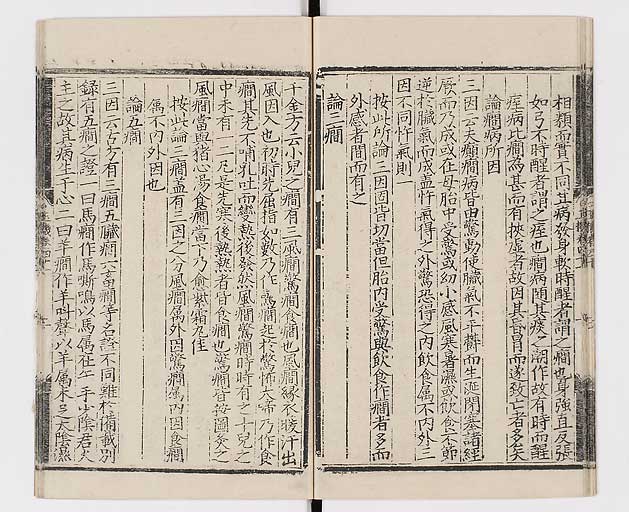 相類而實不同其病發身軟時醒者謂之癇也身強直反張
如弓不時醒者謂之痓也癇病隨其痰之潮作故有時而醒
痓病比癇為甚而有挾虛者故因其昏冒而遂致亡者多矣
論癇病所因
三因云夫癲癇病皆由驚動使臟氣不平欝而生涎閉塞諸經
厥而乃成或在母胎中受驚或幼小感風寒暑濕或飲食不節
逆於臟氣而成盖忤氣得之外驚恐得之内飲食属不内外三
因不同忤氣則一
按此所論三因固皆切當但胎内受驚與飲食作癇者多而
外感者間而有之
論三癇
千金方云小兒之癇有三風癇驚癇食癇也風癇緣衣暖汗出
風因入也初時先屈指如數乃作驚癇起於驚怖大啼乃作食
癇其先不哺乳吐而變熱後發然風癇驚癇時時有之十兒之
中未有一二凡是先寒後熱熱者皆食癇也驚癇皆按圖灸之
風癇當與猪心湯食癇當下乃愈紫霜丸佳
按此論三癇盖有三因之分風癇属外因驚癇属内因食癇
属不内外因也
論五癇
三因云古方有三癇五臟癇六畜癇等名證不同難於備載別
録有五癇之證一曰馬癇作馬嘶鳴以馬属在午手少陰君火
主之故其病生于心二曰羊癇作羊叫聲以羊属未足太陰濕